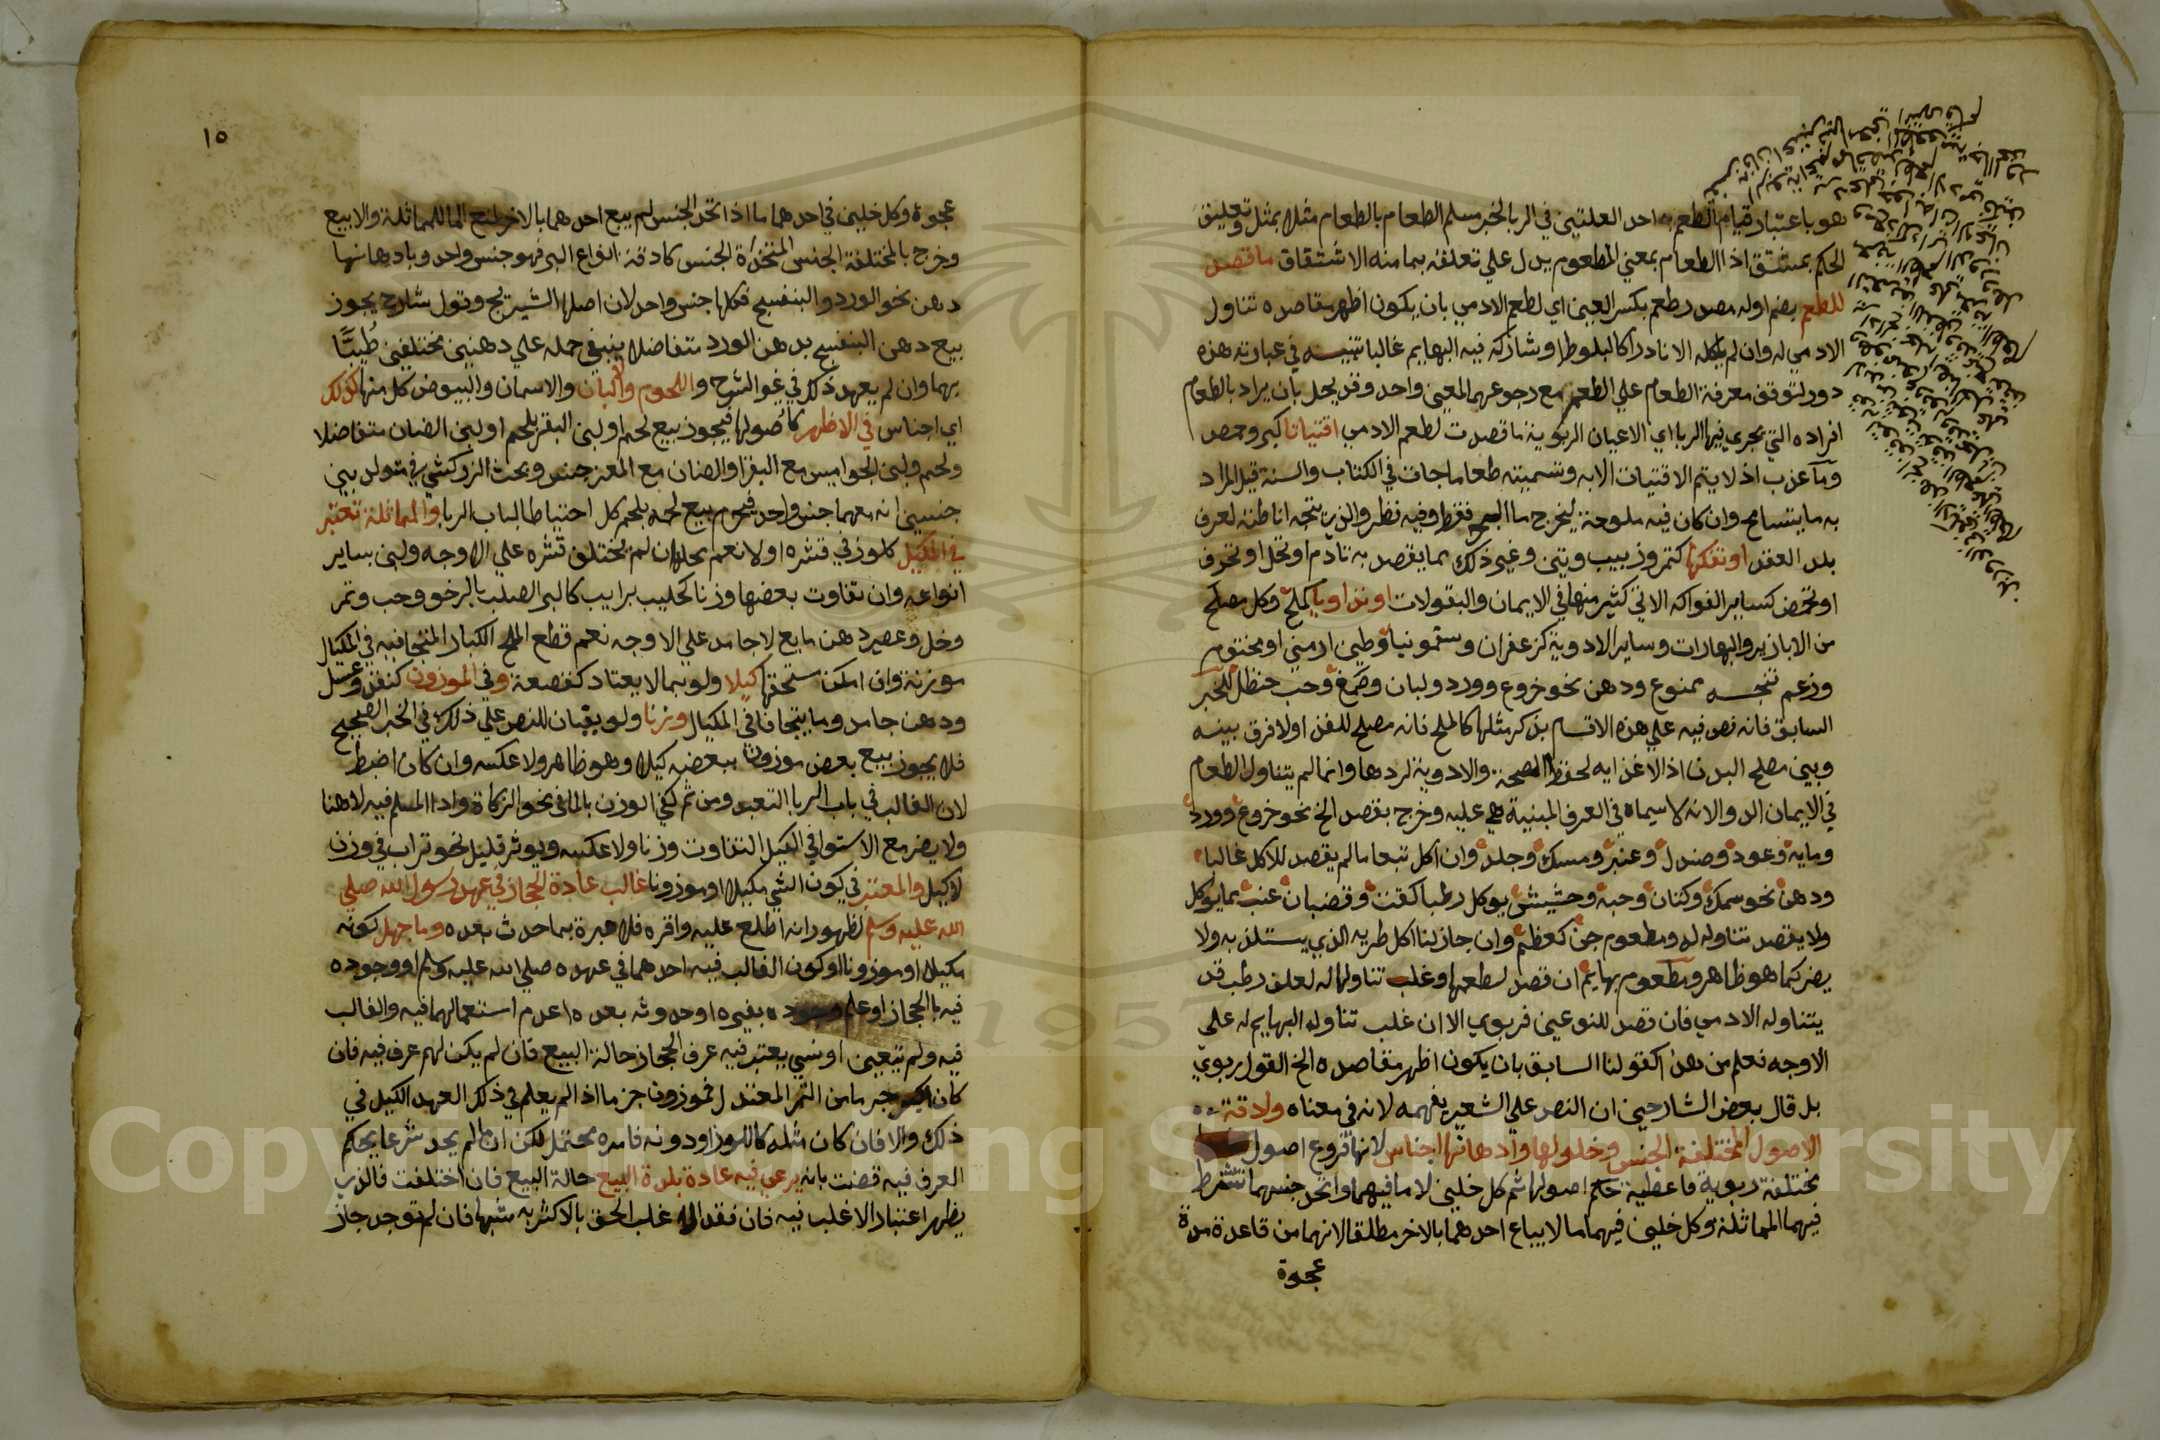 هو باعتبار قيام الطعم احد العلتين في الربا لخبر مسلم الطعام بالطعام مثلا بمثل وتعليق
الحكم بمشتق اذ الطعام بمعني المطعوم يدل علي تعلقه بما منه الاشتقاق ما قصد
للطعم بضم اوله مصدر طعم بكسر العين اي لطعم الادمي بان يكون اظهر مقاصده تناول
الادمي له وان لم ياكله الا نادرا كالبلوط او شاركه فيه البهايم غالبا تنبيه في عبارته هذه
دور لتوقف معرفة الطعام علي الطعم مع رجوعهما لمعني واحد وقد يحل بان يراد بالطعام
افراده التي يجري فيها الربا اي الاعيان الربوية ما قصدت لطعم الادمي اقتياتا كبر وحمص
وماء عذب اذ لا يتم الاقتيات الا به وتسميته طعاما جات في الكتاب والسنة قيل المراد
به ما يتسامح وان كان فيه ملوحة ليخرج ما البحر فقط وفيه نظر والذي يتجه اناطته لعرف
بلد العقد او تفكها كتمر وزبيب وتين وغير ذلك مما يقصد به تادم او تحل او تحرف
او تحمض كساير الفواكه الاتي كثير منها في الايمان والبقولات او تداويا كملح وكل مصلح
من الابازير والبهارات وساير الادوية كزعفران وسقمونيا وطين ارمني او مختوم
وزعم تنجسه ممنوع ودهن نحو خروع وورد ولبان وصمغ وحب حنظل للخبر
السابق فانه نص فيه علي هذه الاقسام بذكر مثلها كالملح فانه مصلح للغذا ولا فرق بينه
وبين مصلح البدن اذ الاغذايه لحفظ الصحة والادوية لردها وانما لم يتناول الطعام
في الايمان الدوا لانه لا يسماه في العرف المبنية هي عليه وخرج بقصد الخ نحو خروع وورد
ومايه وعود وصندل وعنبر ومسك وجلد وان اكل تبعا ما لم يقصد للاكل غالبا
ودهن نحو سمك وكتان وحبه وحشيش يوكل رطبا كقت وقضبان عنب مما يوكل
ولا يقصد تناوله له ومطعوم جن كعظم وان جاز لنا اكل طريه الذي يستلذ به ولا
يضر كما هو ظاهر ومطعوم بهايم ان قصد لطعمها وغلب تناولها له لعلف رطب قد
يتناوله الادمي فان قصد للنوعين فربوي الا ان غلب تناوله البهايم له علي
الاوجه فعلم من هذا كقولنا السابق بان يكون اظهر مقاصده الخ الفول ربوي
بل قال بعض الشارحين ان النص علي الشعير يفهمه لانه في معناه وادقة
الاصول المختلفة الجنس وخلولها وادهانها اجناس لانها فروع اصول
مختلفة ربوية فاعطية حكم اصولها ثم كل خلين لا ما فيهما واتحد جنسهما اشترط
فيهما المماثلة وكل خلين فيهما ما لا يباع احدهما بالاخر مطلقا لانهما من قاعدة مدة
عجوة
١٥
عجوة وكل خلين في احدهما ما اذا اتحد الجنس لم يبع احدهما بالاخر لمنع الما للمماثلة والا بيع
وخرج بالمختلفة الجنس المتحدة الجنس كادقة انواع البر فهو جنس واحد وبادهانها
دهن نحو الورد والبنفسج فكلها جنس واحد لان اصلها الشيرج وقول شارح يجوز
بيع دهن البنفسج بدهن الورد متفاضلا ينبغي حمله علي دهنين مختلفين طُيبّا
بهما وان لم يعهد ذلك في غير الشرج واللحوم والالبان والاسمان والبيوض كل منها كذلك
اي اجناس في الاظهر كاصولها فيجوز بيع لحم او لبن البقر بلحم او لبن الضان متفاضلا
ولحم ولبن الجواميس مع البقر والضان مع المعز جنس وبحث الزركشي في متولد بين
جنسين انه معهما جنس واحد فيحرم بيع لحمه بلحم كل احتياطا لباب الربا والمماثلة تعتبر
في المكيل كلوز في قشره اولا نعم يحله ان لم يختلف قشره علي الاوجه ولبن بساير
انواعه وان تفاوت بعضها وزنا كحليب برايب كالبر الصلب بالرخو وحب وتمر
وخل وعصير دهن مايع لا جامد علي الاوجه نعم قطع الملح الكبار المتجافيه في المكيال
موزنة وان امكن سحقها كيلا ولو بما لا يعتاد كقصعة وفي الموزون كنقد وعسل
ودهن جامد وما يتجافا في المكيال وزنا ولو بقبان للنص علي ذلك في الخبر الصحيح
فلا يجوز بيع بعض موزون ببعضه كيلا وهو ظاهر ولا عكسه وان كان اضبط
لان الغالب في باب الربا التعبد ومن ثم كفي الوزن بالما في نحو الزكاة واداا المسلم فيه لا هنا
ولا يضر مع الاستوا في الكيل التفاوت وزنا ولا عكسه ويوثر قليل نحو تراب في وزن
لا كيل والمعتبر في كون الشي مكيلا او موزونا غالب عادة الحجاز في عهد رسول الله صلي
الله عليه وسلم لظهور انه اطلع عليه واقره فلا عبرة بما حدث بعده وما جهل كونه
مكيلا او موزونا او كون الغالب فيه احدهما في عهده صلي الله عليه وسلم او وجوده
فيه بالحجاز او علم وجوده بغيره او حدوثه بعده او عدم استعمالهما فيه والغالب
فيه ولم يتعين او نسي يعتبر فيه عرف الحجاز حالة البيع فان لم يكن لهم عرف فيه فان
كان اكبر جرما من التمر المعتدل فموزون جزما اذ لم يعلم في ذلك العهد الكيل في
ذلك والا فان كان مثله كاللوز او دونه فامره محتمل لكن ان ما لم يحد شرعا يحكم
العرف فيه قضت بانه يرعي فيه عادة بلدة البيع حالة البيع فان اختلفت فالذي
يظهر اعتبار الاغلب فيه فان فقد غلب الحق بالاكثر به شبها فان لم توجد جاز